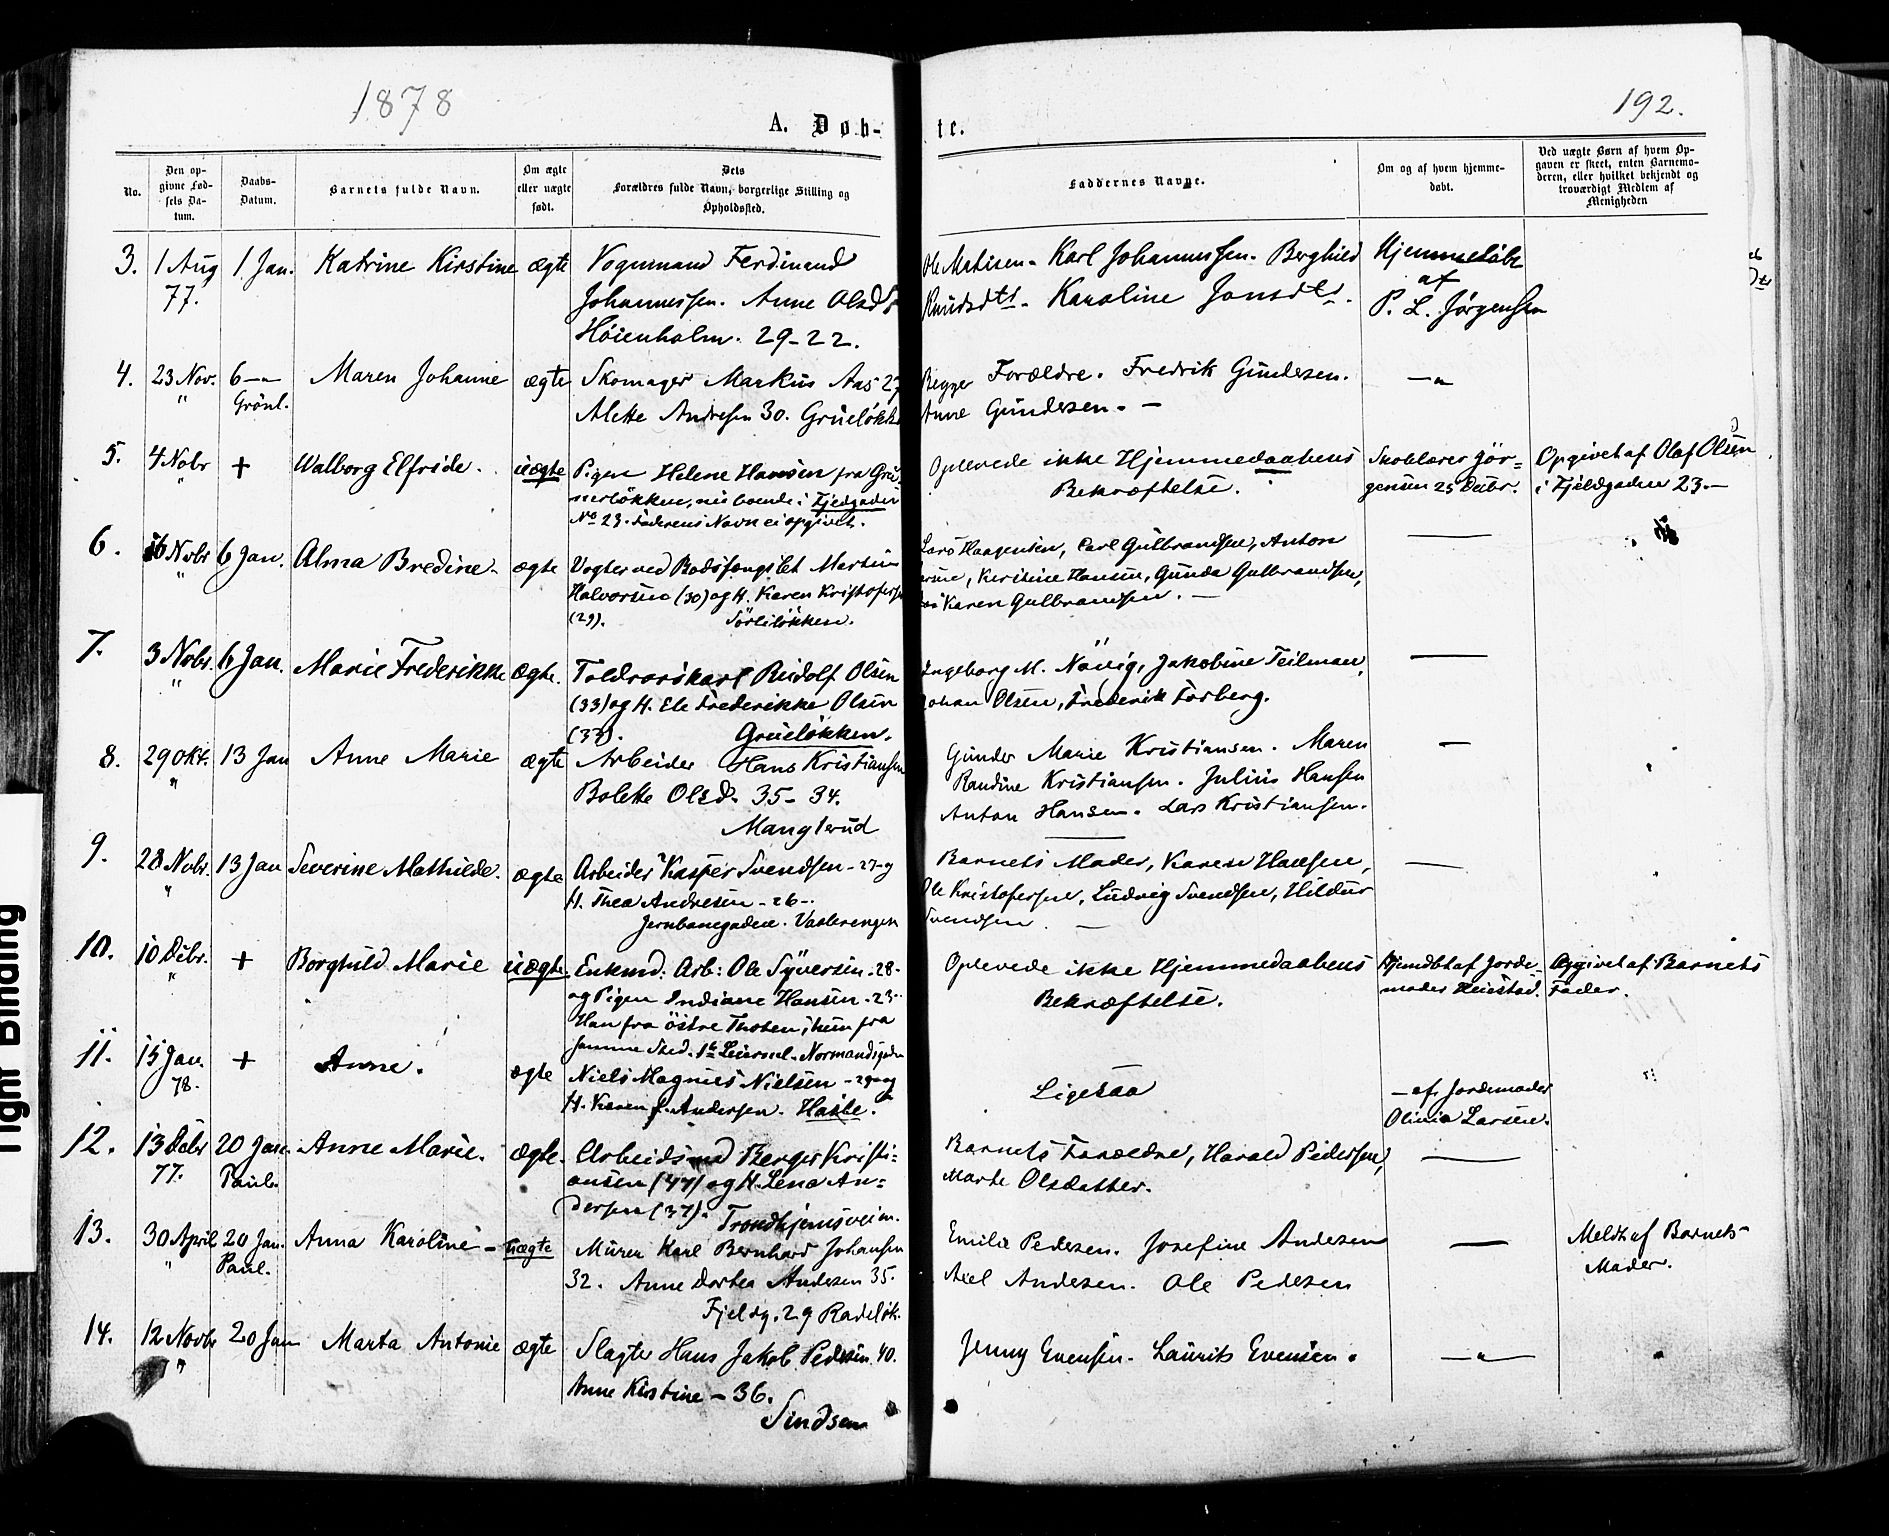 1878
192.
A. Døb-
te.
No.
Den op-
givne Fød-
sels Da-
tum.
Daabs-
Datum.
Barnets fulde Navn.
Om ægte
eller uægte
født.
Dets
Forældres fulde Navn, borgerlige Stilling og
Opholdssted.
Faddernes Navne.
Om og af hvem hjemme-
døbt.
Ved uægte Børn af hvem Op-
gaven er skeet, enten Barnemo-
deren, eller hvilket bekjendt og
troværdigt Medlem af
Menigheden
3. 1 Aug 1 Jan. Katrine Kirstine ægte Vognmand Ferdinand Ole Matisen - Karl Johannessen - Berghild Hjemmedøbt
77. Johannessen. Anne Olsdtr Knudsdtr - Karoline Jonsdtr. af
Høienholm. 29-22. P. L. Jørgensen
4. 23 Nov. 6 —"— Maren Johanne ægte Skomager Markus Aas 27 Begge Forældre. Fredrik Gundersen. —"
" Grönl. Alette Andresen 30. Grueløkk Anne Gundersen. —
5. 4 Nobr + Walborg Elfride. uægte Pigen Helene Hansen fra Grü- Oplevede ikke Hjemmedaabens Skolelærer Jör= Opgivet af Olaf Olsen
nerløkken, nu boende i Fjeldgaden Bekræftelse. gensen 25 Decbr. i Fjeldgaden 23.—
No 23. Faderens Navn ei opgivet.
6. 16 Nobr 6 Jan. Alma Bredine. ægte Vogter ved Bodsfængslet Martin Lars Haagensen, Carl Gulbrandsen, Anton —
" Halvorsen (30) og H. Karen Kristofers Kristine Hansen, Gunda Gulbrandsen,
(29). Sörliløkken. Karen Gulbrandsen. —
7. 3 Nobr. 6 Jan. Marie Frederikke ægte. Toldroerskarl Rudolf Olsen Ingeborg M. Növig, Jakobine Teilman, —
" (33) og H. Ele Frederikke Olsen Johan Olsen, Frederik Forberg.
(33). Grueløkken.
8. 29 Okt. 13 Jan Anne Marie ægte Arbeider Hans Kristiansen Gunder Marie Kristiansen. Maren —
" Bolette Olsd. 35-34. Randine Kristiansen. Julius Hansen
Manglerud Anton Hansen. Lars Kristiansen.
9. 28 Nobr. 13 Jan Severine Mathilde. ægte Arbeider Kasper Svendsen - 27 og Barnets Moder, Karen Hansen, —
" H. Thea Andresen - 26 -. Ole Kristofersen, Ludvig Svendsen, Hildur
Jernbanegaden. Vaalerengen Svendsen —
10. 10 Debr. + Borghild Marie uægte. Enkmd: Arb: Ole Syversen - 28 - Oplevede ikke Hjemmedaabens Hjemdbt af Jorde- Opgivet af Barnets
" og Pigen Indiane Hansen - 23 - Bekræftelse. moder Heiestad. Fader.
Han fra östre Thoten, hun fra
samme Sted. 1ste Leierml. Normandsgaden
11. 15 Jan. + Anne. ægte Niels Magnus Nielsen - 29 og Ligesaa — af Jordemoder
78. H. Karen J. Andersen. Hasle. Olivia Larsen.
12. 13 Debr 20 Jan. Anne Marie. ægte. Arbeidsmd Berger Kristi= Barnets Forældre, Harald Pedersen, —
77. Paul. ansen (47) og H. Lena An= Marte Olsdatter.
dersen (37). Trondhjemsveien.
13. 30 April 20 Jan. Anna Karoline - uægte Murer Karl Bernhard Johansen Emilie Pedersen. Josefine Andersen — Meldt af Barnets
" Paul. 32. Anne Dortea Andersen 35. Axel Andersen. Ole Pedersen Moder.
Fjeldg. 29 Rodeløk.
14. 12 Novbr 20 Jan Marta Antonie ægte Slagter Hans Jakob Pedersen 40. Jenny Evensen. Laurits Evensen. —"—
" Anne Kirstine - 36.
Sindsen
Tight Binding